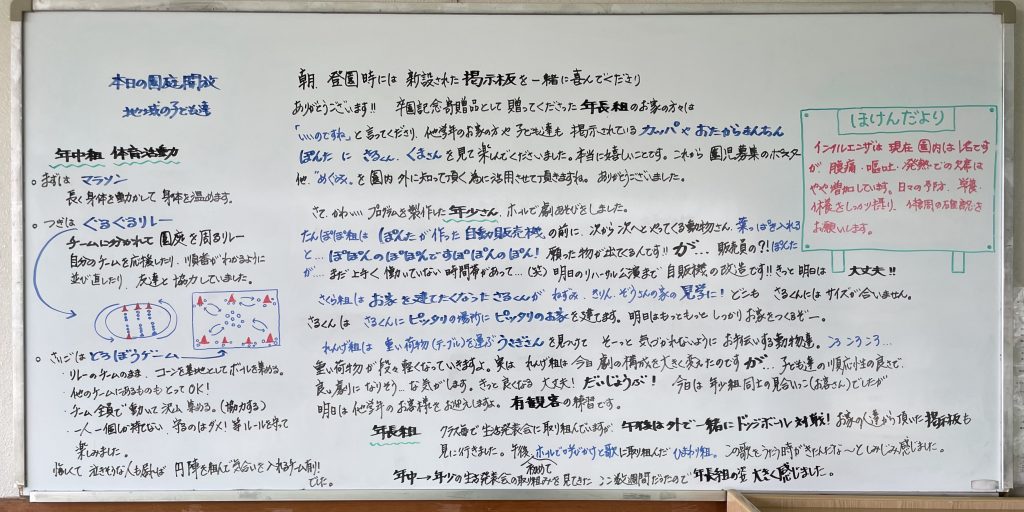 本日の園庭開放
地域の子ども達
年中組 体育活動
○まずは マラソン
長く身体を動かして身体を温めます。
○つぎは ぐるぐるリレー
チームに分かれて園庭を周るリレー
自分のチームを応援したり、順番がわかるように
並び直したり、友達と協力していました。
○さいごはどろぼうゲーム
・リレーのゲームのまま、コーンを基地としてボールを集める。
・他のチームにあるものもとってOK!
・チーム全員で動いて沢山集める。(協力する)
・一人一個しか持てない 守るのはダメ! 等ルールを守って
楽しみました。
悔しくて 泣きそうな人も居れば 円陣を組んで気合いを入れるチーム有り!
でした。
朝、登園時には 新設された掲示板を一緒に喜んでくださり
ありがとうございます!! 卒園記念寄贈品として 贈ってくださった 年長組のお家の方々は
「いいのですね」と言ってくださり、他学年のお家の方や子ども達も 掲示されている カッパや おたからまんちん
ぽんたに さるくん、くまさんを見て楽しんでくださいました。本当に嬉しいことです。これから 園児募集のポスター
他、"めぐみ"を園内外に知って頂く為に活用させて頂きますね。ありがとうございました。
さて、かわいい プログラムを製作した年少さん、ホールで劇あそびをしました。
たんぽぽ組は ぽんたが作った自動販売機の前に、次から次へとやってくる動物さん、葉っぱを入れる
と… ぽぽぽんのぽぽんですぽぽんのぽん! 願った物が出てくるんです!! が… 販売員の?!ぽんた
が… まだ上手く働いていない時間帯があって…(笑) 明日のリハーサル公演まで 自販機の改造です!! きっと明日は 大丈夫!!
さくら組は お家を建てたくなったさるくんが ねずみ、きりん、ぞうさんの家の見学に! どこも さるくんには サイズが合いません。
さるくんは さるくんにピッタリの場所に ピッタリのお家を建てます。明日はもっともっと しっかりお家をつくるぞー。
れんげ組は 重い荷物(テーブル)を運ぶうさぎさんを見つけて そーっと 気づかれないようにお手伝いする動物達。ころころころ…
重い荷物が段々軽くなっていきますよ。実は れんげ組は 今日 劇の構成を大きく変えたのですが、子ども達の順応性の良さで、
良い劇になりそう…な気がします。きっと良くなる 大丈夫! だいじょうぶ! 今日は 年少組同士の見合いっこ(お客さん)でしたが
明日は他学年のお客様をお迎えしますよ。有観客の練習です。
年長組 クラス毎で生活発表会に取り組んでいますが、午後は外で一緒にドッジボール対戦! お家の人達から頂いた掲示板も
見に行きました。午後、ホールで呼びかけと歌に取り組んだ ひまわり組。この歌をうたう時がきたんだな〜としみじみ感じました。
初めて
年中→年少の生活発表会の取り組みを見てきた ここ数週間だったので 年長組の姿 大きく感じました。
ほけんだより
インフルエンザは 現在 園内は1名です
が、腹痛・嘔吐・発熱での欠席は
やや増加しています。日々の予防、栄養、
休養をしっかり摂り、体調の確認を
お願いします。